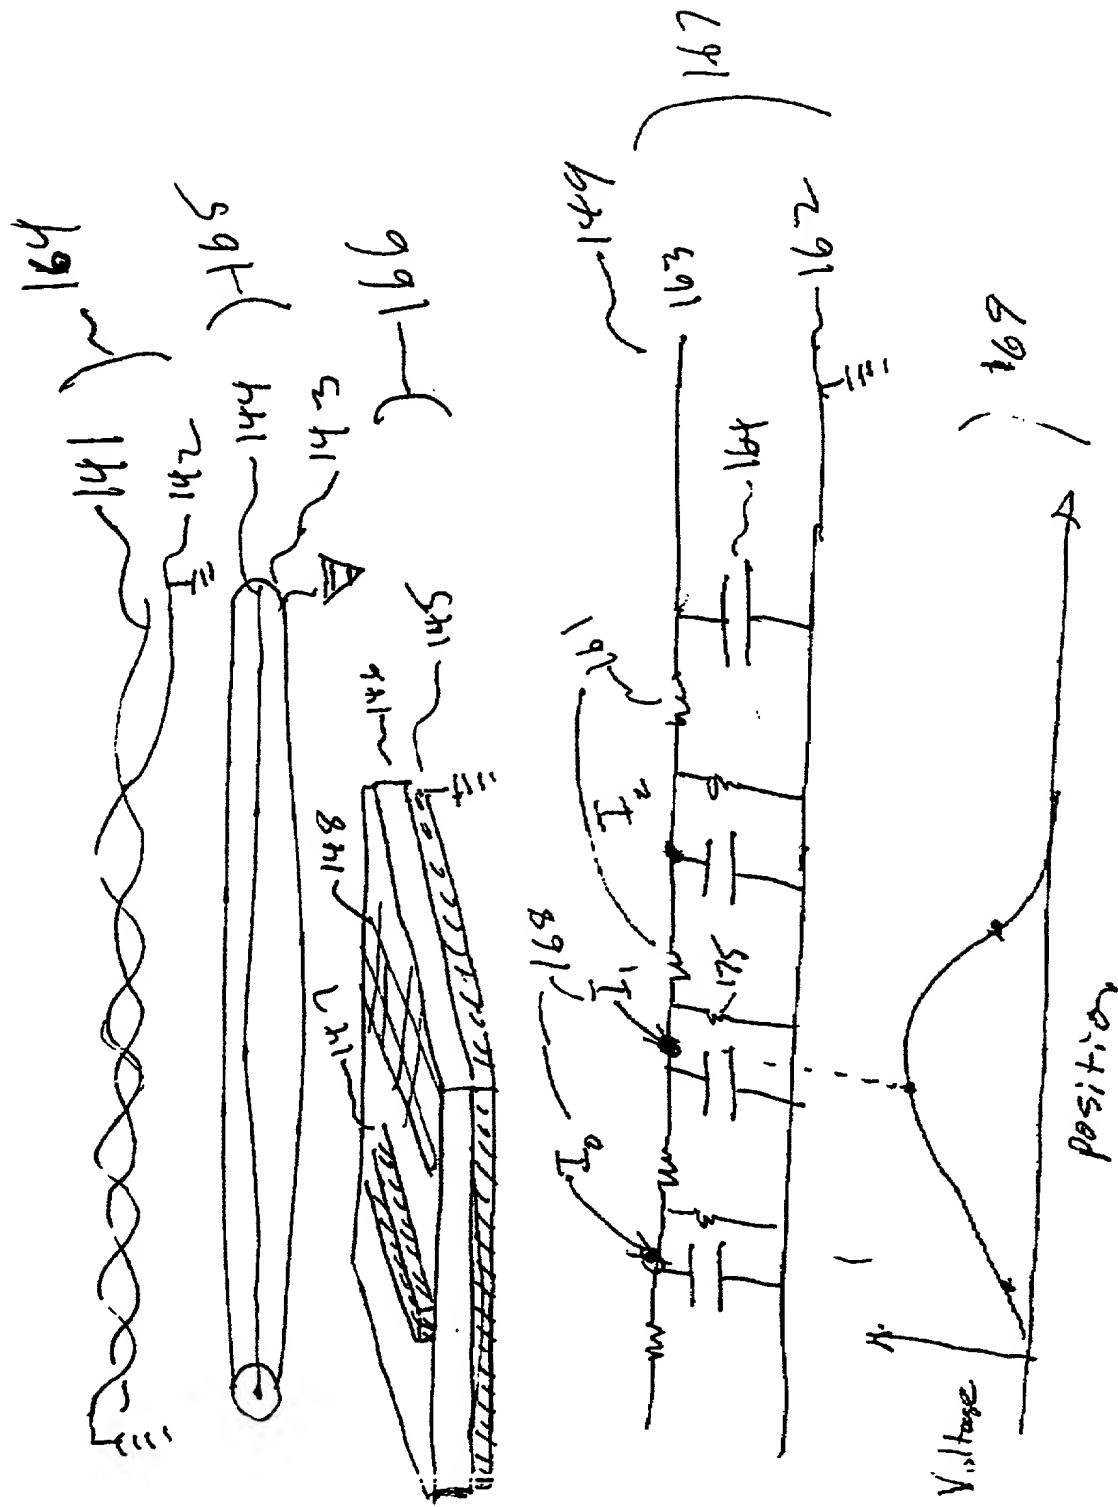 164
141
142
165
144
143
166
146
145
148
147
167
149
163
162
161
164
I2
168
I1
175
I0
169
Voltage
Position